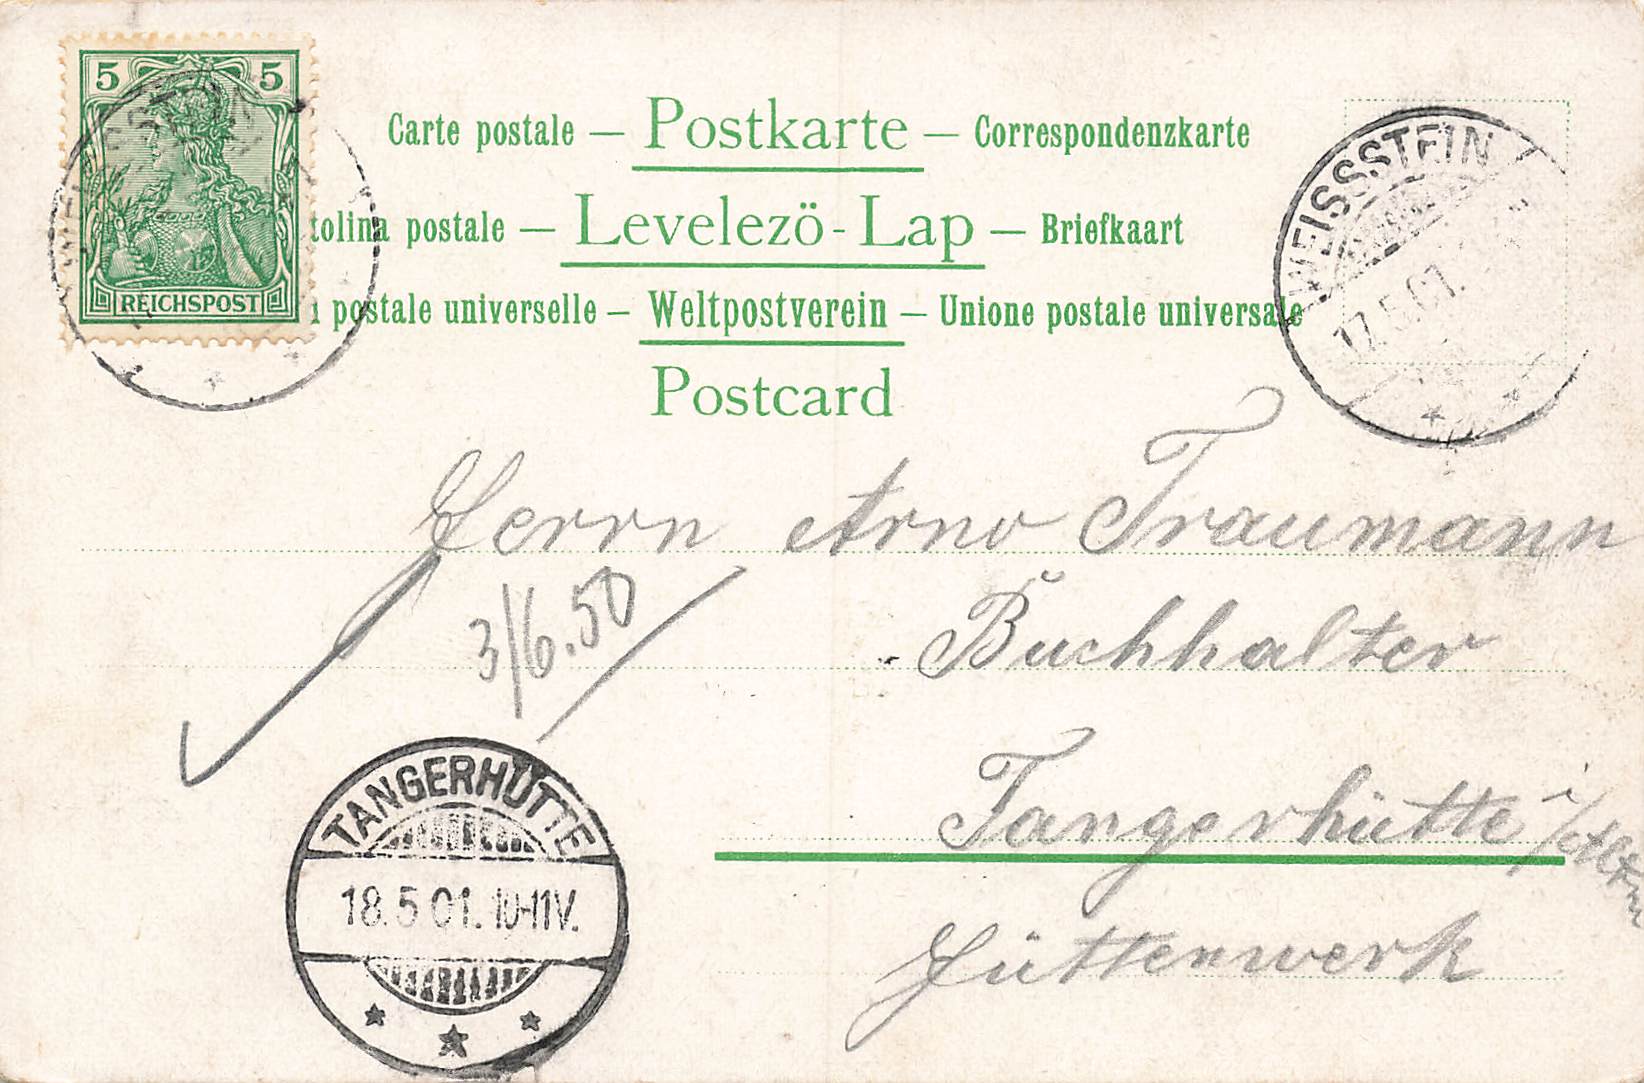 5 5
REICHSPOST
Carte postale — Postkarte — Correspondenzkarte
tolina postale — Levelezö-Lap — Briefkaart
postale universelle — Weltpostverein — Unione postale universale
Postcard
WEISSSTEIN
17.5.01.
Herrn Arno Traumann
3/6.50
Buchhalter
Tangerhütte i/Altm
Hüttenwerk
TANGERHÜTTE
18.5.01. 10-11V.